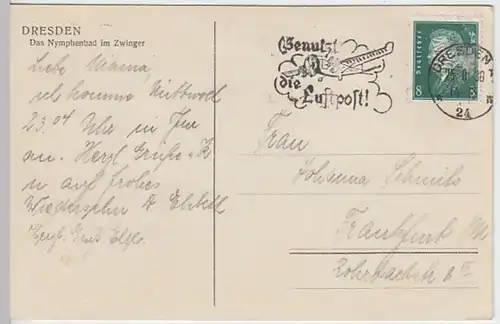 DRESDEN
Das Nymphenbad im Zwinger
Liebe Mama,
ich komme Mittwoch
23.04 Uhr in
an. Herzl Grüße
u auf frohes
Wiedersehn
Herzl. Gruß
Benutzt
die
Luftpost!
8
DRESDEN
24
Frau
Johanna Schmits
Frankfurt M